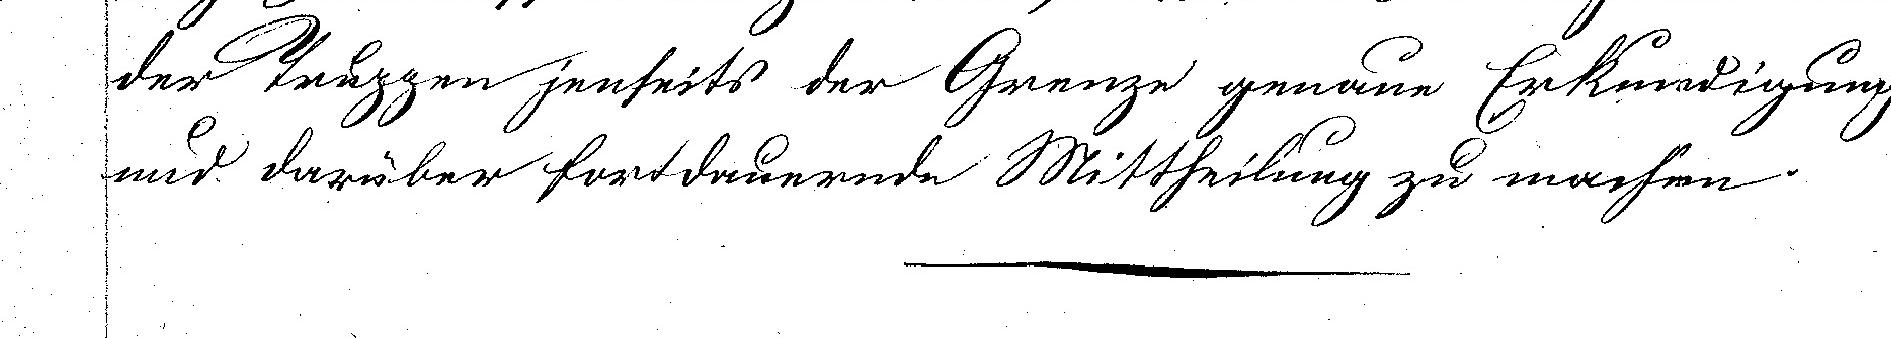 der Truppen jenseits der Grenze genaue Erkundigung
und darüber fortdauernde Mittheilung zu machen.